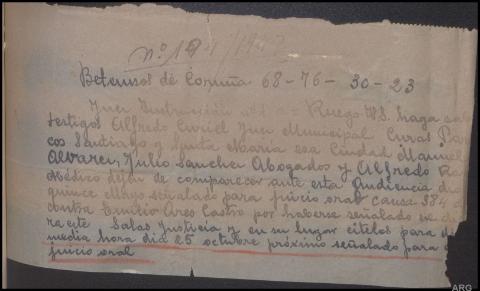 nº 194/1947
Betanzos de Coruña 68-76-30-23
Juez Instrucción nº 1 = Ruego VS. haga saber
testigos Alfredo Curiel Juez Municipal Curas
cos Santiago y Santa María esa Ciudad Manuel
Alvarez, Julio Sanchez Abogados y Alfredo
Médico dejen de comparecer ante esta Audiencia dia
quince Mayo señalado para juicio oral causa 384
contra Emilio Ares Castro por haberse señalado en
este Salas Justicia y en su lugar citelos para
media hora dia 25 octubre próximo señalado para
juicio oral
ARG